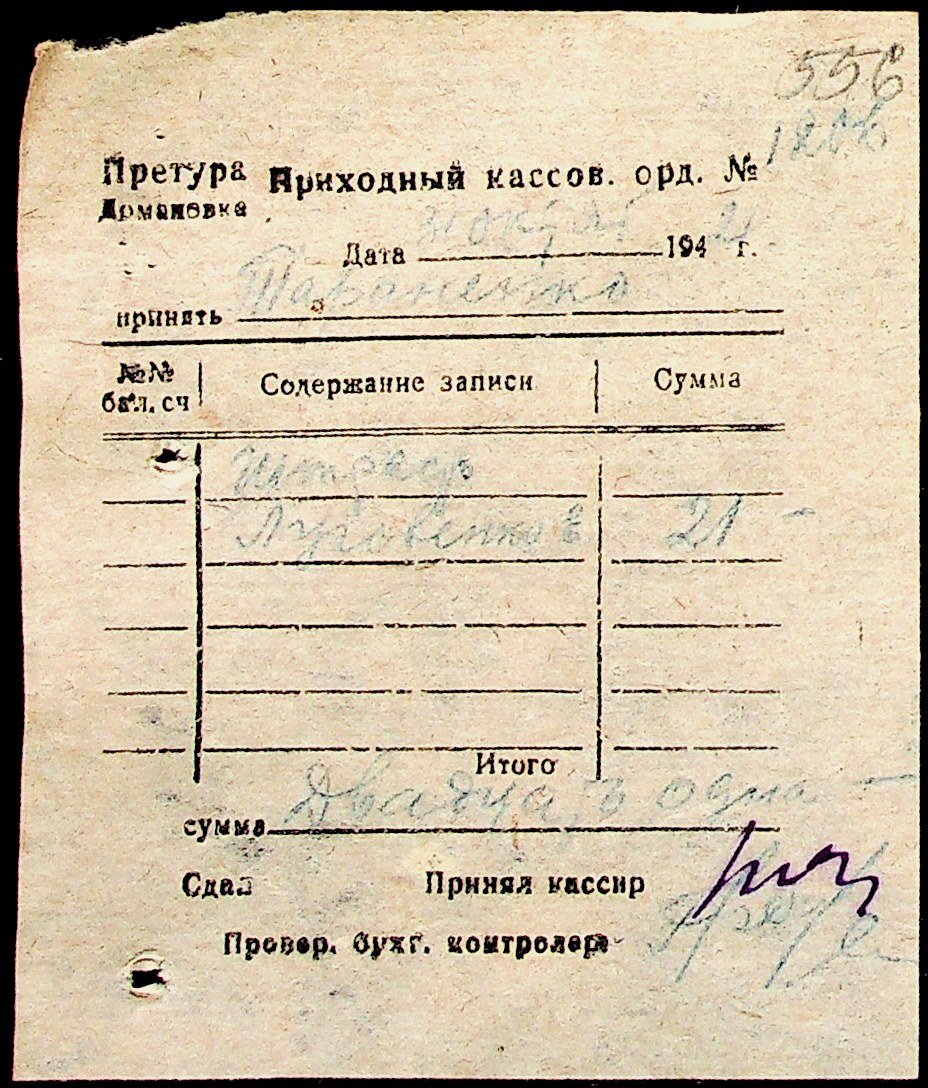 556
Претура Приходный кассов. орд. №
Армановка
Дата 194 г.
принять Тараненко
№№ бал. сч Содержание записи Сумма
Штраф
21 -
Итого
сумма Двадцать одна
Сдал Принял кассир
Провер. бухг. контролера